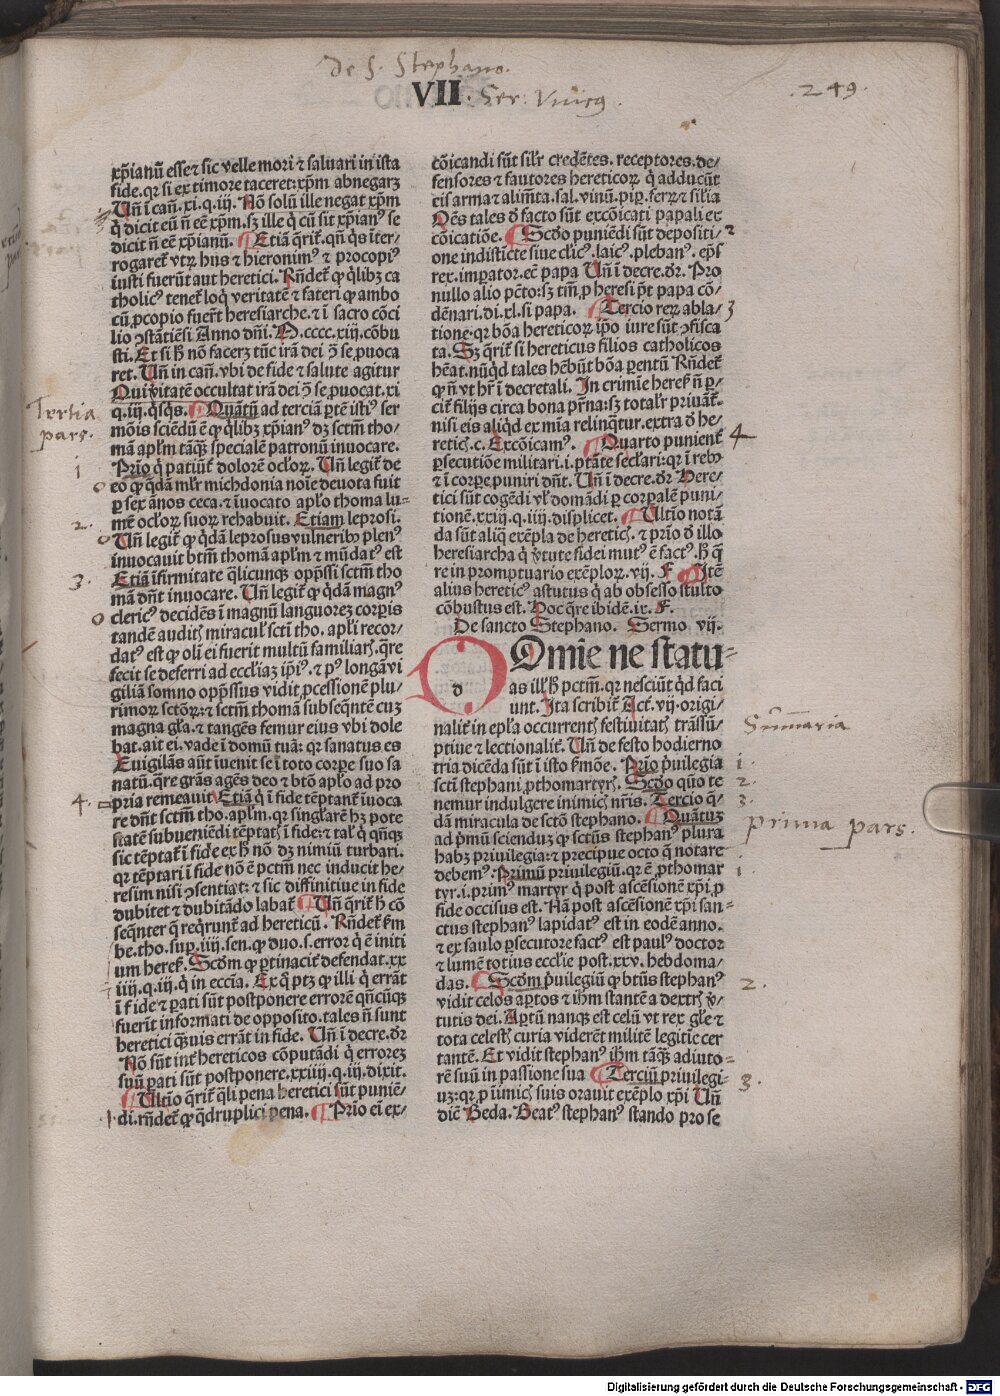 de S. Stephano.
VII. Ser. Vnicus.
.249.
xp̄ianū esse ⁊ sic velle mori ⁊ saluari in ista
fide. qr si ex timore taceret: xp̄m abnegarꝫ
Uñ i cañ. xi. q. iij. Nō solū ille negat xp̄m
q̇ dicit eū ñ eē xp̄m. sꝫ ille q̇ cū sit xp̄ianꝰ se
dicit ñ eē xp̄ianū. ¶ Etiā q̄rit̄. qñ q̇s īter⸗
rogaret̄ vtꝝ hus ⁊ hieronimꝰ ⁊ procopiꝰ
iusti fuerūt aut heretici. Rñdet̄ ꝙ q̇libꝫ ca
tholicꝰ tenet̄ loq̇ veritatē ⁊ fateri ꝙ ambo
cū ꝓcopio fuer̄t heresiarche. ⁊ ī sacro cōci
lio ꝯstātiēsi Anno dñi. M. cccc. xiij. cōbu
sti. Et si h̄ nō facerꝫ tūc irā dei ꝯ̄ se ꝓuoca
ret. Uñ in cañ. vbi de fide ⁊ salute agitur
Qui v̓itatē occultat irā dei ꝯ̄ se ꝓuocat. xi
q. iij. q̇sq̇s. ¶ Quātū ad terciā ꝑtē istiꝰ ser
mōis sciēdū ē ꝙ q̇libꝫ xp̄ianꝰ dꝫ sctm̄ tho⸗
mā apl̄m tāqꝫ speciale patronū inuocare.
Tertia
pars.
1
Prīo q̇ patiūt̄ dolorē oclōꝝ. Uñ legit̄ de
eo ꝙ q̄dā ml̓r michdonia noīe deuota fuit
ꝑ sex anos ceca. ⁊ īuocato aplō thoma lu⸗
2.
mē oclōꝝ suoꝝ rehabuit. Etiam leprosi.
Uñ legit̄ ꝙ q̇dā leprosus vulneribꝰ plenꝰ
inuocauit btm̄ thomā apl̄m ⁊ mūdatꝰ est
3.
Etiā īfirmitate q̄licunqꝫ opp̄ssi sctm̄ tho
mā dñt inuocare. Uñ legit̄ ꝙ q̇dā magnꝰ
clericꝰ decidēs ī magnū languorez corꝑis
tandē auditꝭ miracul̓ scti tho. apl̄i recor⸗
datꝰ est ꝙ oli̓ ei fuerit multū familiarꝭ. q̄re
fecit se deferri ad eccl̄iaꝫ ip̄iꝰ. ⁊ pꝰ longā vi
giliā somno opp̄ssus vidit ꝓcessionē plu⸗
rimoꝝ sctōꝝ: ⁊ sctm̄ thomā subseq̄ntē cuꝫ
magna gl̄a. ⁊ tangēs femur eius vbi dole
bat. ait ei. vade ī domū tuā: qr sanatus es
Euigilās aūt īuenit se ī toto corꝑe suo sa
natū. q̄re grās agēs deo ⁊ btō aplō ad pro
4.
pria remeauit. Etiā q̇ ī fide tēptant̄ īuoca
re dñt sctm̄ tho. apl̄m. qr singlarē hꝫ pote
statē subueniēdi tēptatꝭ ī fide: ⁊ tal̓ q̇ qñqꝫ
sic tēptat̄ ī fide ex h̄ nō dꝫ nimiū turbari.
qr tēptari ī fide nō ē pctm̄ nec inducit he⸗
resim nisi ꝯsentiat: ⁊ sic diffinitiue in fide
dubitet ⁊ dubitādo labat̄ ¶ Uñ q̄rit̄ h̄ cō
seq̄nter q̄ req̇runt̄ ad hereticū. Rñdet̄ ẜm
be. tho. suꝑ. iiij. sen. ꝙ duo. s. error q̇ ē initi
um heres̄. Scdm̄ ꝙ ꝑtinacit̓ defendat. xx
iiij. q. iij. q̇ in eccīa. Ex q̊ ptꝫ ꝙ illi q̇ errāt
ī fide ⁊ ꝑati sūt postponere errorē qñcūqꝫ
fuerīt informati de opposito. tales ñ sunt
heretici q̄uis errāt in fide. Uñ ī decre. dr̄
Nō sūt int̓ hereticos cōputādi q̇ errorez
suū ꝑati sūt postponere. xxiiij. q. iij. dixit.
¶ Ultīo q̄rit̄ q̄li pena heretici sūt puniē⸗
di. rñdet̄ ꝙ q̄druplici pena. ¶ Prīo ei ex⸗
cōicandi sūt sil̓r credētes. receptores. de⸗
fensores ⁊ fautores hereticoꝝ q̇ adducūt
eis arma ⁊ alimīta. sal. vinū. piꝑ. ferꝝ ⁊ silia
Oēs tales d̓ facto sūt excōicati papali ex
cōicatiōe. ¶ Scdo puniēdi sūt depositi⸗
2
one indisticte siue clic̓. laicꝰ. plebanꝰ. ep̄s
rex. imꝑator. ec̄ papa Uñ ī decre. dr̄. Pro
nullo alio pcto: sꝫ tm̄ ꝓ heresi pt̄ papa cō⸗
dēnari. di. xl. si papa. ¶ Tercio reꝝ abla⸗
3
tione. qr bōa hereticoꝝ ip̄o iure sūt ꝯfisca
ta. Sꝫ q̄rit̄ si hereticus filios catholicos
hēat. nūqd̓ tales hēbūt bōa ꝑentū Rñdet̄
ꝙ ñ vt hr̄ ī decretali. In crimīe heres̄ ñ ꝑ⸗
cit̄ filijs circa bona pr̄na: sꝫ total̓r priuāt̄.
nisi eis aliq̇d ex mīa relinq̇tur. extra d̓ he⸗
reticꝭ. c. Excōicamꝰ. ¶ Quarto punient̄
4
ꝑsecutiōe militari. i. ptāte secl̄ari: qr ī rebꝰ
⁊ ī corꝑe puniri dñt. Uñ ī decre. dr̄ Here⸗
tici sūt cogēdi vl̓ domādi ꝑ corꝑalē puni⸗
tionē. xxiij. q. iiij. displicet. ¶ Ultīo notā
da sūt aliq̄ exēpla de hereticꝭ. ⁊ prīo d̓ illo
heresiarcha q̇ v̓tute fidei mutꝰ ē factꝰ. h̄ q̄
re in promptuario exēploꝝ. vij. F ¶ Itē
alius hereticꝰ astutus q̇ ab obsesso stulto
cōbustus est. Hoc q̄re ibidē. ix. F.
De sancto Stephano. Sermo vij.
d
Omīe ne statu⸗
as ill̓ h̄ pctm̄. qr nesciūt qd̓ faci
unt. Ita scribit̄ Act̄. vij. origi⸗
nalit̓ in epl̄a occurrentꝭ festiuitatꝭ trāssū⸗
Summaria
ptiue ⁊ lectionalit̓. Uñ de festo hodierno
tria dicēda sūt ī isto ẜmōe. Prīo p̓uilegia
1.
scti stephani ꝓthomartyrꝭ. Scdo quō te
2.
nemur indulgere inimicꝭ nr̄is. Tercio q̄⸗
3.
dā miracula de sctō stephano. ¶ Quātuꝫ
prima pars.
ad p̓mū sciendum ꝙ sctūs stephanꝰ plura
habꝫ priuilegia: ⁊ precipue octo q̄ notare
debemꝰ: Primū priuilegiū. qr ē ꝓthomar
1
tyr. i. primꝰ martyr q̇ post ascēsionē xp̄i ꝓ
fide occisus est. Nā post ascēsionē xp̄i san⸗
ctus stephanꝰ lapidatꝰ est in eodē anno.
⁊ ex saulo ꝑsecutore factꝰ est paulꝰ doctor
⁊ lumē totius eccl̄ie post. xxv. hebdoma⸗
das. ¶ Scdm̄ p̓uilegiū ꝙ btūs stephanꝰ
2.
vidit celos aꝑtos ⁊ ihm̄ stantē a dextrꝭ v̓⸗
tutis dei. Aꝑtū nanqꝫ est celū vt rex gl̄e ⁊
tota celestꝭ curia viderēt militē legitīe cer
tantē. Et vidit stephanꝰ ihm̄ tāqꝫ adiuto⸗
rē suū in passione sua ¶ Terciū priuilegi⸗
3.
uꝫ: qr ꝓ inimicꝭ suis orauit exēplo xp̄i Uñ
diē Beda. Beatꝰ stephanꝰ stando pro se
Digitalisierung gefördert durch die Deutsche Forschungsgemeinschaft - DFG